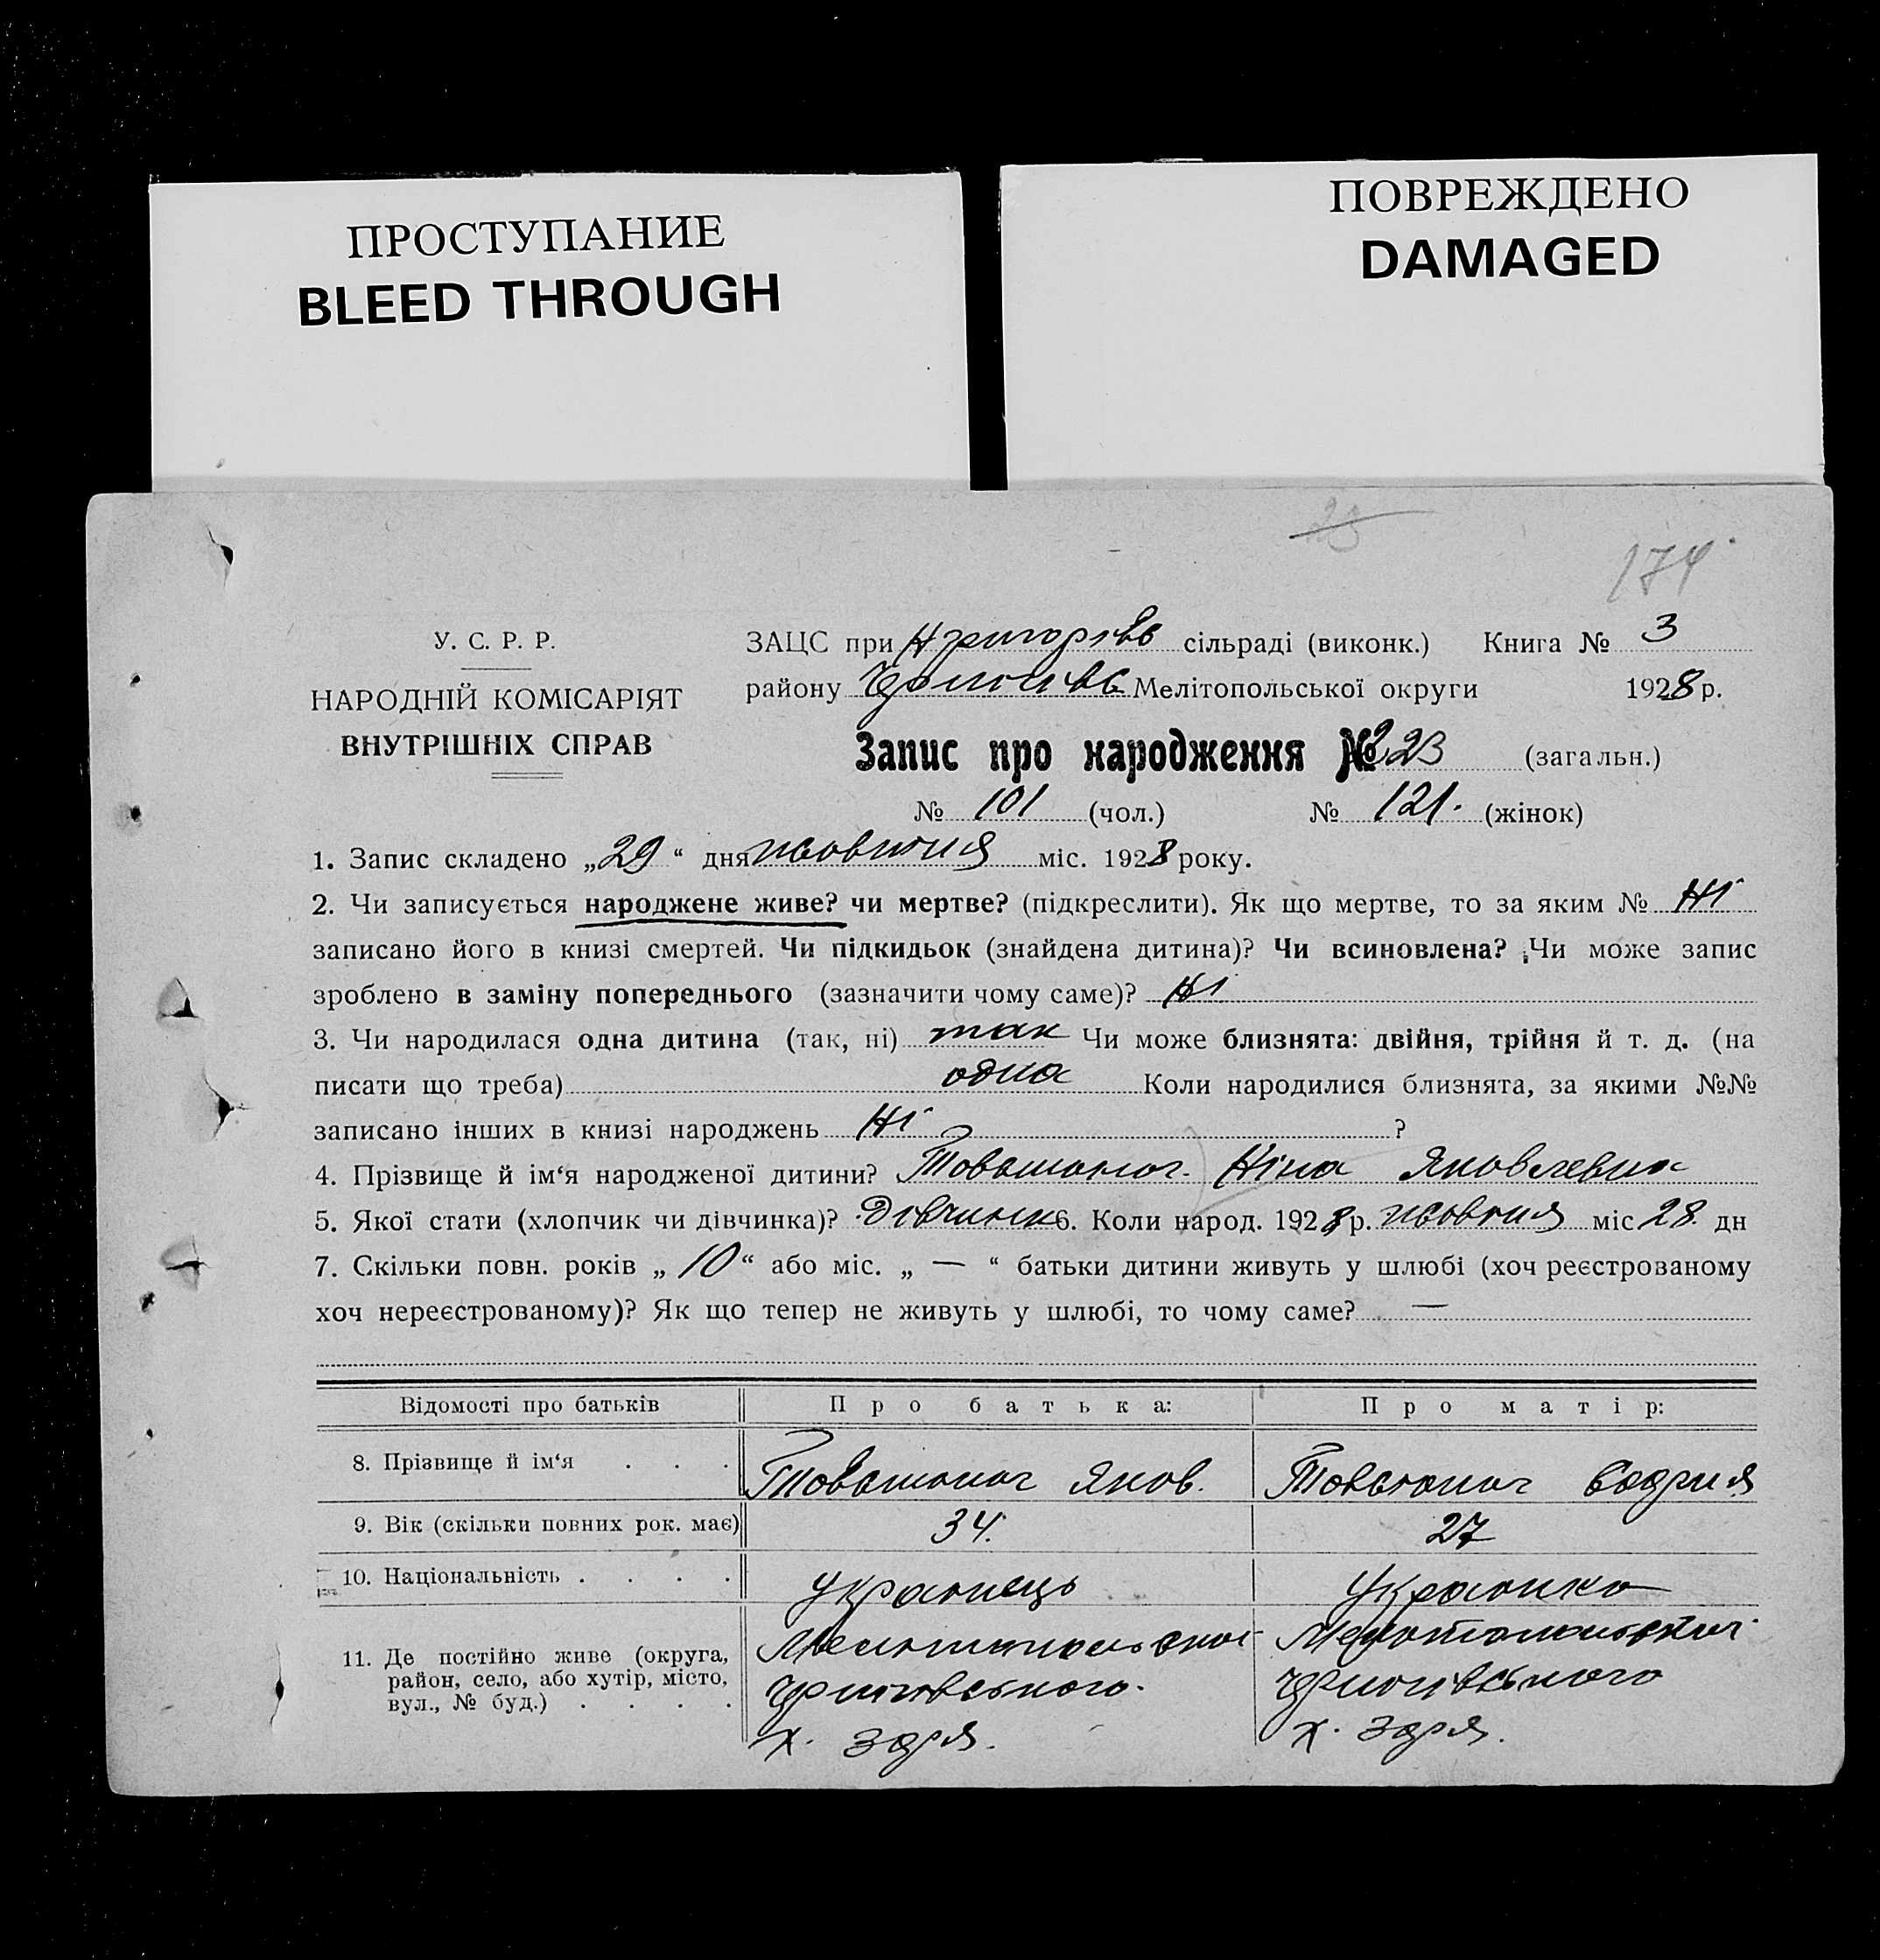 ПРОСТУПАНИЕ
BLEED THROUGH
ПОВРЕЖДЕНО
DAMAGED
23
174
У. С. Р. Р.
НАРОДНІЙ КОМІСАРІЯТ
ВНУТРІШНІХ СПРАВ
ЗАЦС при сільраді (виконк.) Книга № 3
району Мелітопольської округи 1928 р.
Запис про народження № 223 (загальн.)
№ 101 (чол.) № 121. (жінок)
1. Запис складено „29“ дня жовтня міс. 1928 року.
2. Чи записується народжене живе? чи мертве? (підкреслити). Як що мертве, то за яким № Ні
записано його в книзі смертей. Чи підкидьок (знайдена дитина)? Чи всиновлена? Чи може запис
зроблено в заміну попереднього (зазначити чому саме)? Ні
3. Чи народилася одна дитина (так, ні) так Чи може близнята: двійня, трійня й т. д. (на
писати що треба) одна Коли народилися близнята, за якими №№
записано інших в книзі народжень Ні ?
4. Прізвище й ім‘я народженої дитини? Ніна Яковлевна
5. Якої стати (хлопчик чи дівчинка)? Дівчинк 6. Коли народ. 1928 р. жовтня міс 28. дн
7. Скільки повн. років „10“ або міс. „—“ батьки дитини живуть у шлюбі (хоч реєстрованому
хоч нереєстрованому)? Як що тепер не живуть у шлюбі, то чому саме? —
Відомості про батьків Про батька: Про матір:
8. Прізвище й ім‘я . . . Яков.
9. Вік (скільки повних рок. має) 34. 27
10. Національність . . . . Українець Українка
11. Де постійно живе (округа,
район, село, або хутір, місто,
вул., № буд.) . . . .
х. Зоря. х. Зоря.